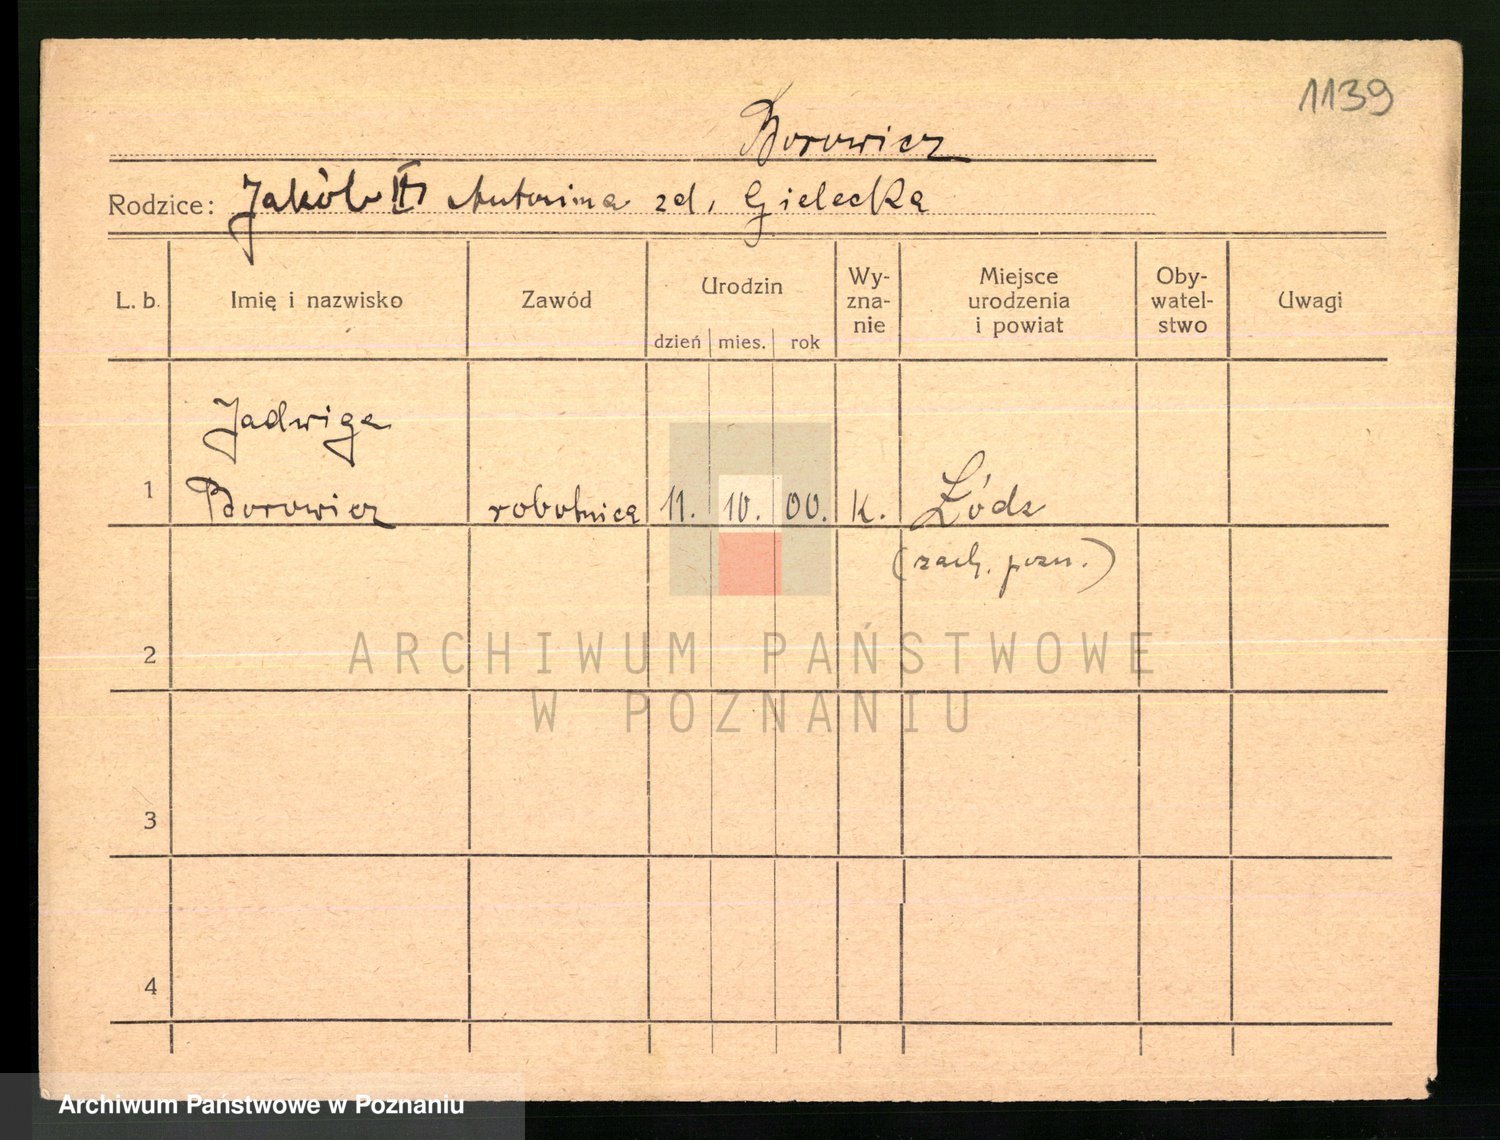 1139
Borowicz
Rodzice: Jakób Antonina zd. Gielecka
L. b. Imię i nazwisko Zawód Urodzin dzień mies. rok Wy-zna-nie Miejsce urodzenia i powiat Oby-watel-stwo Uwagi
Jadwiga
1 Borowicz robotnica 11. 10. 00. k. Łódz
(zach. pozn.)
2
ARCHIWUM PAŃSTWOWE
W POZNANIU
3
4
Archiwum Państwowe w Poznaniu